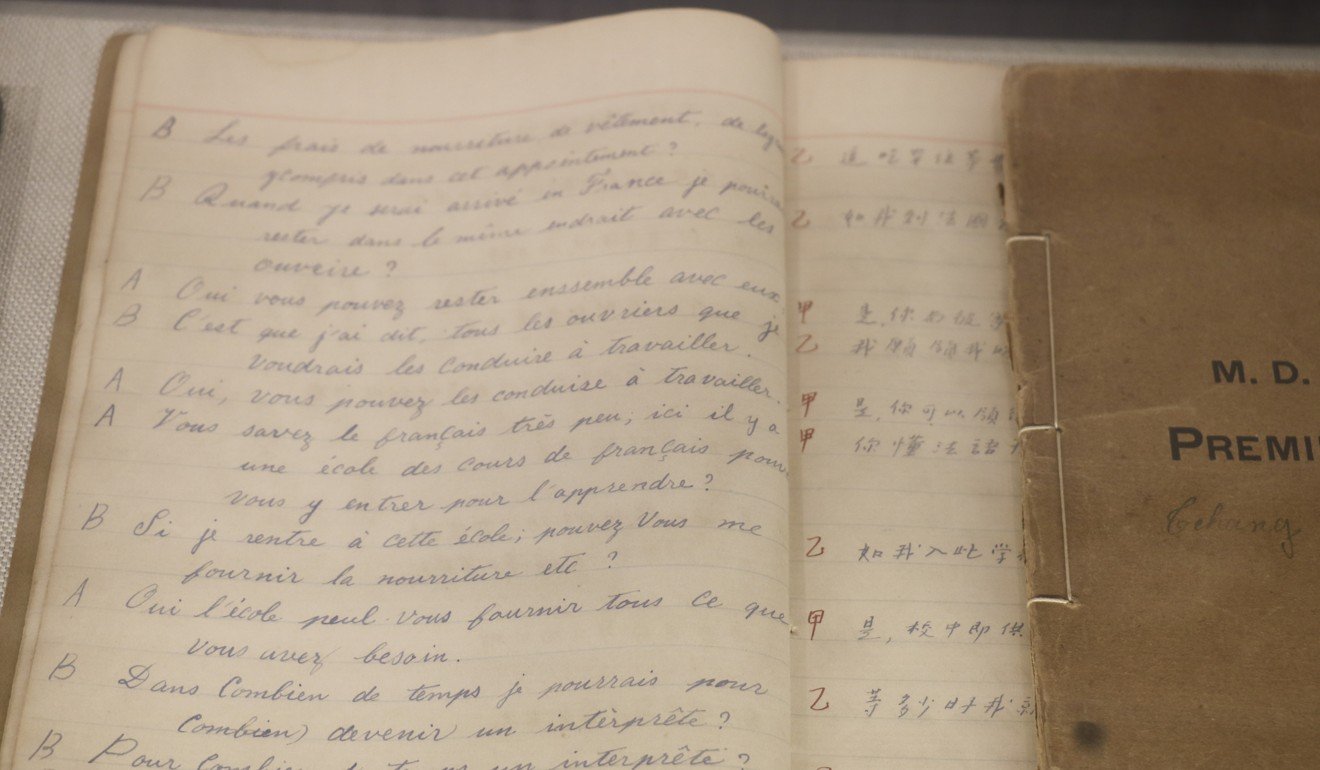 B Les frais de nourriture, de vêtement, de
ycompris dans cet appointement ?
B Quand je serai arrivé en France je
rester dans le même endroit avec les
ouvrire ?
A Oui vous pouvez rester enssemble avec eux
B C'est que j'ai dit, tous les ouvriers que je
voudrais les conduire à travailler.
A Oui, vous pouvez les conduise à travailler.
A Vous savez le français très peu; ici il y a
une école des cours de français
vous y entrer pour l'apprendre ?
B Si je rentre à cette école; pouvez Vous me
fournir la nourriture etc ?
A Oui l'école peul vous fournir tous ce que
vous avez besoin.
B Dans Combien de temps je pourrais pour
Combien) devenir un intèrprête ?
B Pour Combien de temps un interprête ?
乙
乙 如我到法國
甲 是,你
乙 我領
甲 是,你可以領
甲 你懂法語
乙 如我入此学
甲 是,校中即供
乙 等多少时我
M. D.
PREMI
Tchang